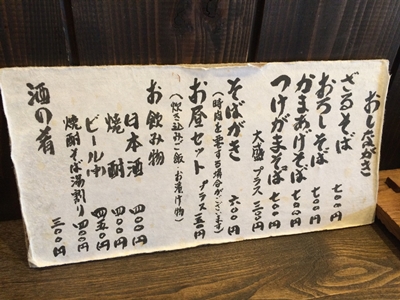 おしながき
ざるそば 七〇〇円
おろしそば 七〇〇円
かまあげそば 七〇〇円
つけがまそば 七〇〇円
大盛 プラス 三〇〇円
そばがき 六〇〇円
(時間を要する場合がございます)
お昼セット プラス 三五〇円
(炊き込みご飯・お漬け物)
お飲み物
日本酒 四〇〇円
焼酎 四〇〇円
ビール中 四五〇円
焼酎そば湯割り 四〇〇円
酒の肴 三〇〇円